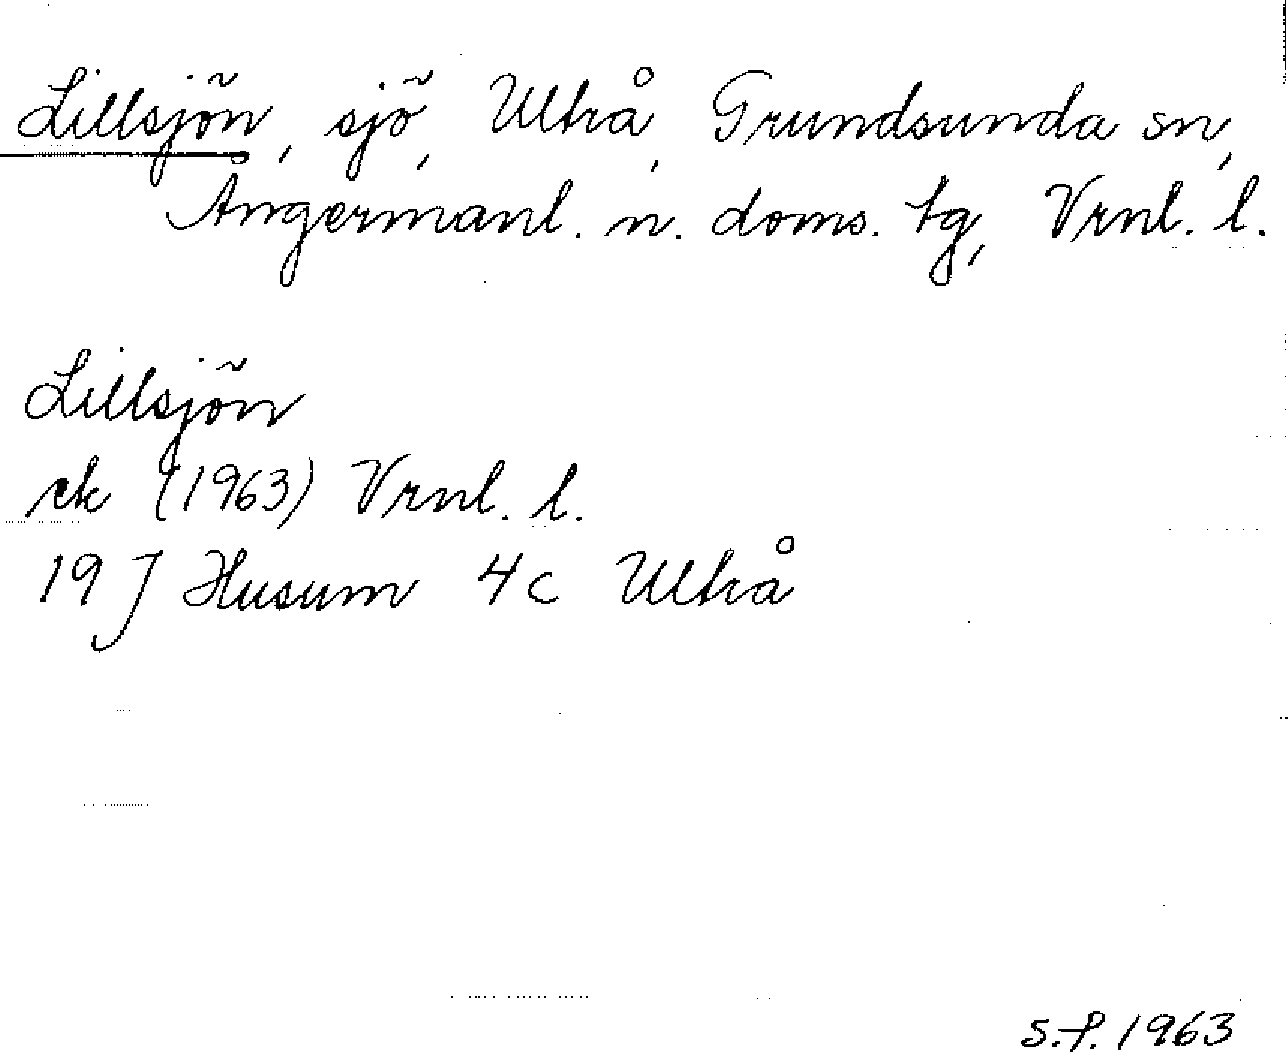 Lillsjön, sjö, Ultrå, Grundsunda sn,
Ångermanl. n. doms. tg, Vrnl. l.
Lillsjön
ek (1963) Vrnl. l.
19 J Husum 4c Ultrå
S.F. 1963